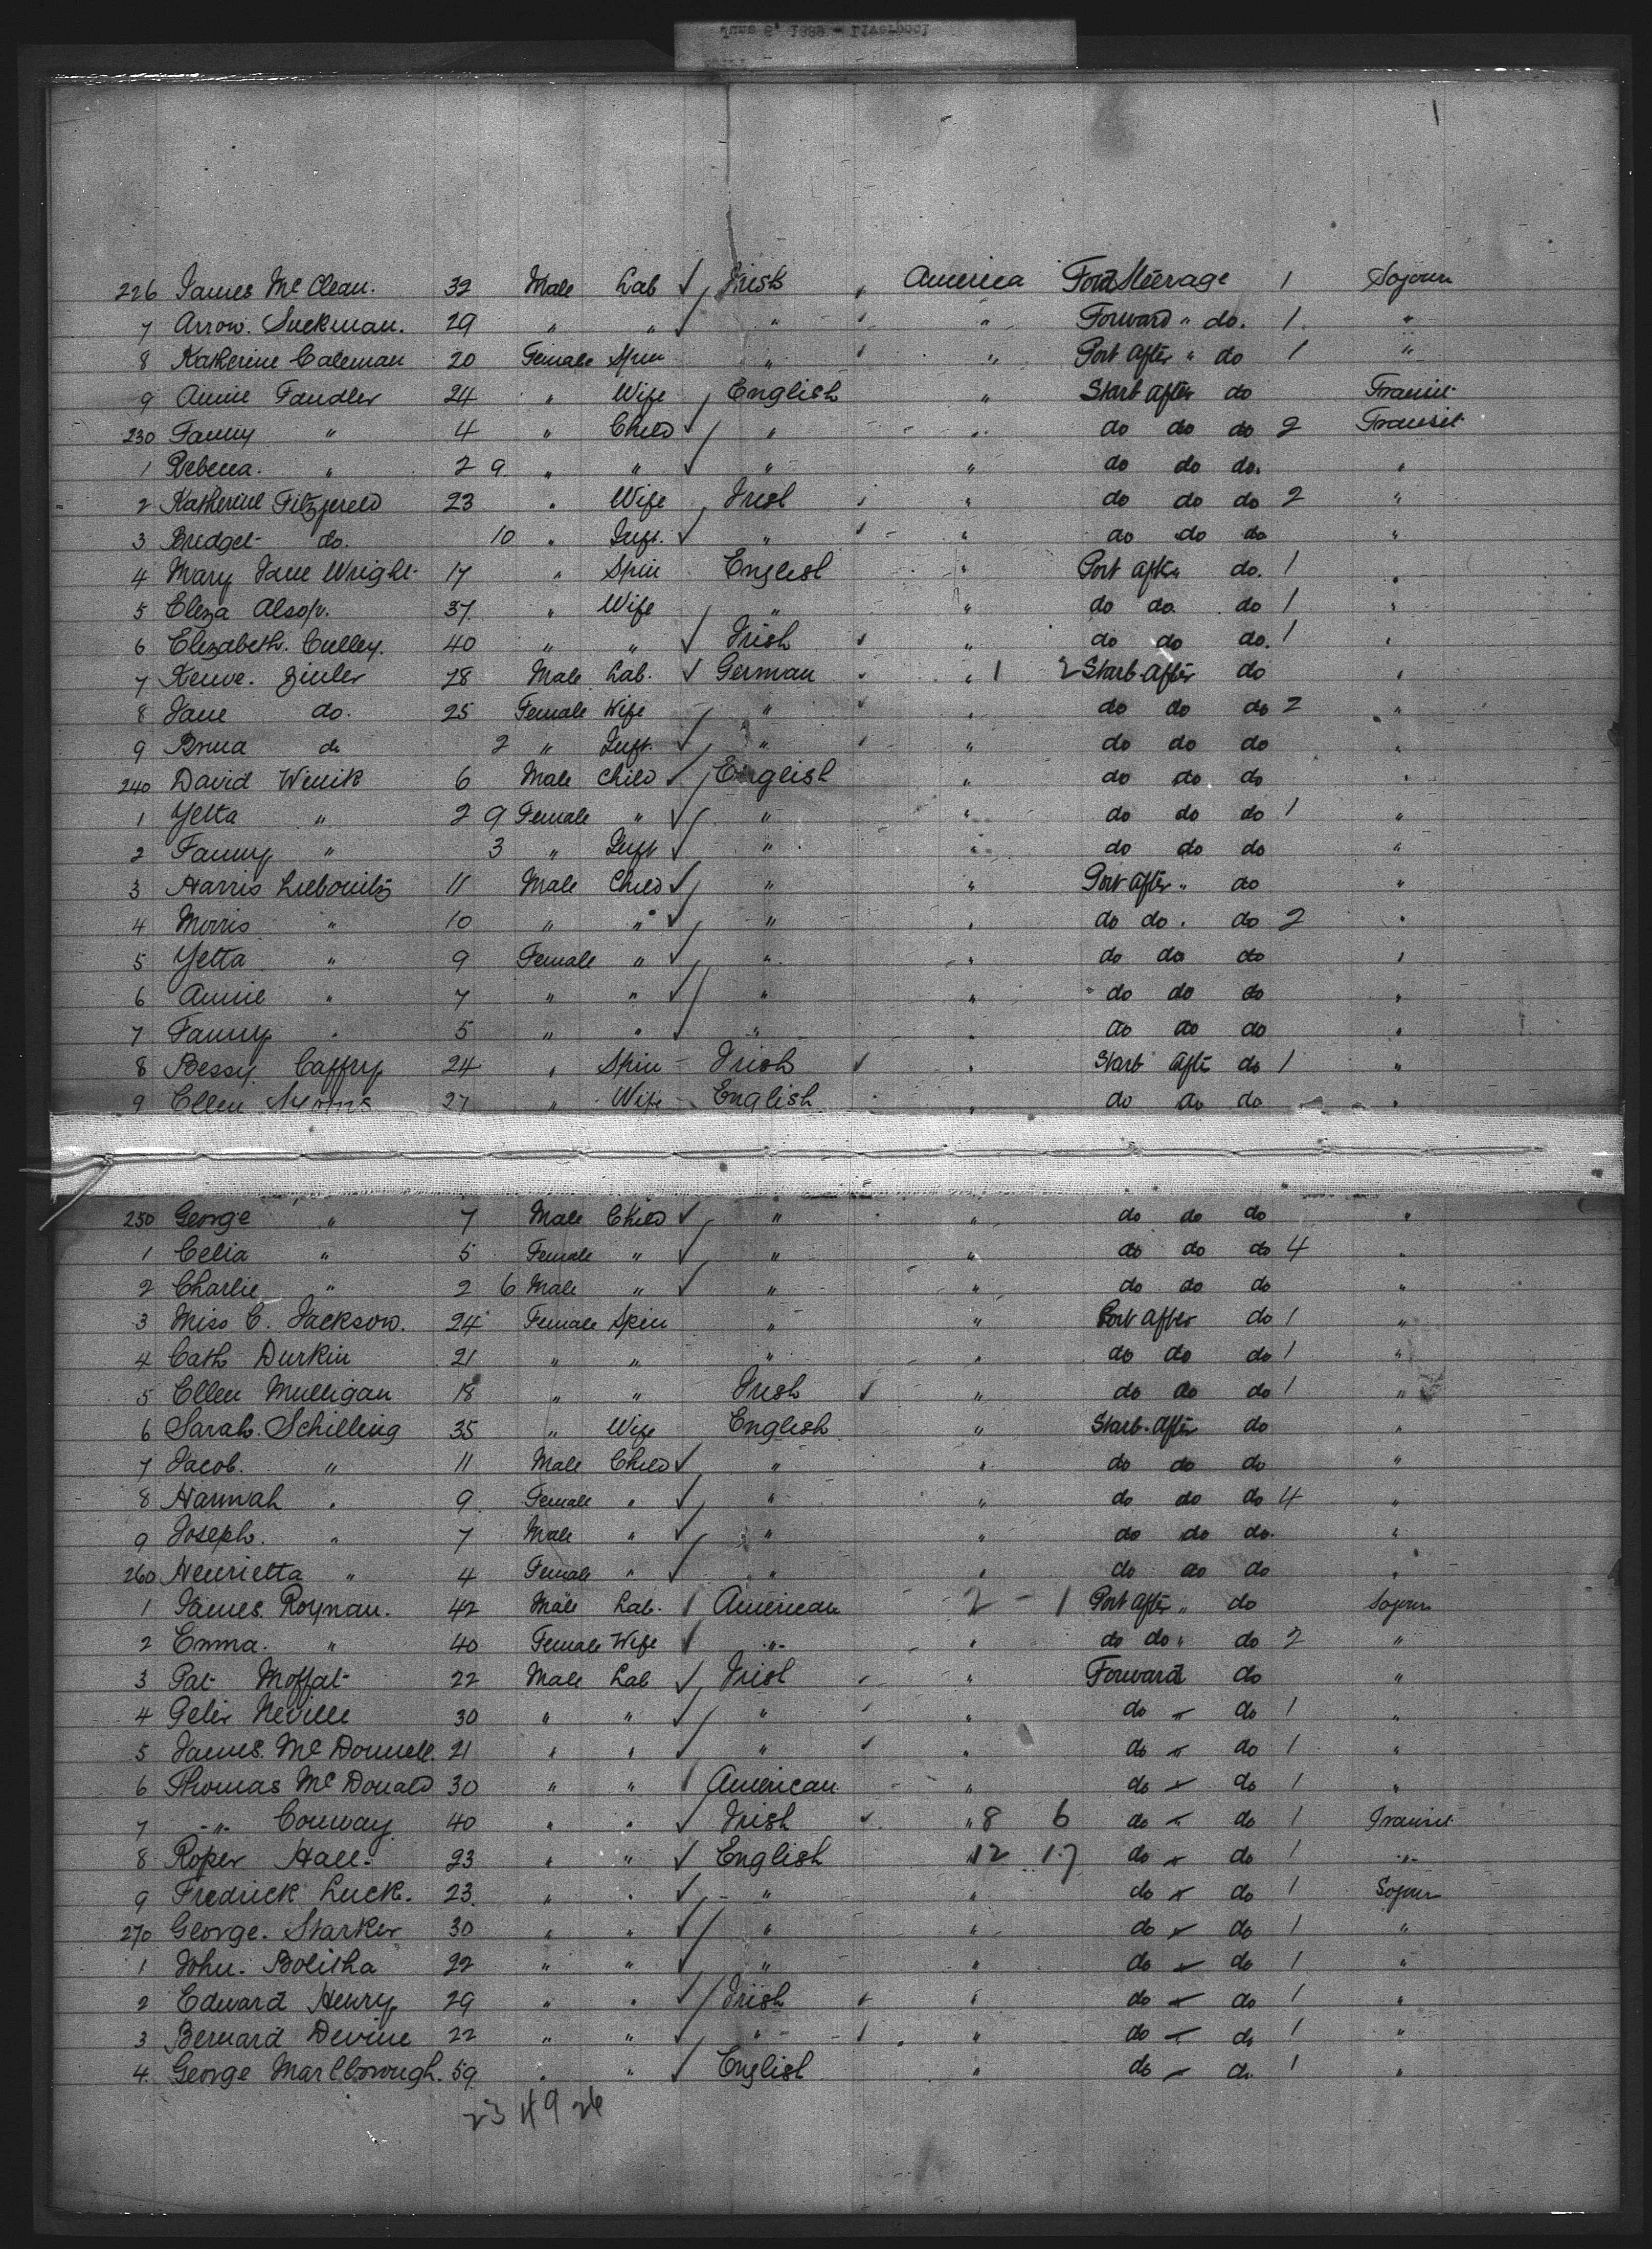 June 6, 1889 - Liverpool
226 James Mc Clean. 32 Male Lab ✓ Irish America Ford Steerage 1 Sojourn
7 Arrow. Suckman. 29 " " ✓ " " Forward " do. 1 "
8 Katherine Caleman 20 Female Spin " " Port After " do 1 "
9 Annie Fandler 24 " Wife English " Starb After do Transit
230 Fanny " 4 " Child ✓ " " do do do 2 Transit
1 Rebecca. " 2 9 " " ✓ " " do do do. "
2 Katherine Fitzgereld 23 " Wife Irish " do do do 2 "
3 Bridget do. 10 " Inft. ✓ " " do do do "
4 Mary Jane Wright 17 " Spin English " Port After do. 1 "
5 Eliza Alsop. 37 " Wife " " do do. do 1 "
6 Elizabeth. Culley. 40 " " ✓ Irish " do do do. 1 "
7 Keuve. Zinler 28 Male Lab. ✓ German " 1 2 Starb After do "
8 Jane do. 25 Female Wife " " do do do 2 "
9 Brua do 2 " Inft. ✓ " " do do do "
240 David Wenik 6 Male Child ✓ English " do do do "
1 Yetta " 2 9 Female " ✓ " " do do do 1 "
2 Fanny " 3 " Inft ✓ " " do do do "
3 Harris Liebovitz 11 Male Child ✓ " " Port After " do "
4 Morris " 10 " " ✓ " " do do. do 2 "
5 Yetta " 9 Female " ✓ " " do do do "
6 Annie " 7 " " ✓ " " do do do "
7 Fanny " 5 " " ✓ " " do do do "
8 Bessy Caffry 24 " Spin Irish ✓ " Starb Aft do 1 "
9 Ellen 27 " Wife English " do do do "
250 George " 7 Male Child ✓ " " do do do "
1 Celia " 5 Female " ✓ " " do do do 4 "
2 Charlie " 2 6 Male " ✓ " " do do do "
3 Miss C. Jackson. 24 Female Spin " " Port After do 1 "
4 Cath Durkin 21 " " " " do do do 1 "
5 Ellen Mulligan 18 " " Irish ✓ " do do do 1 "
6 Sarah. Schilling 35 " Wife English " Starb. After do "
7 Jacob. " 11 Male Child ✓ " " do do do "
8 Hannah " 9 Female " ✓ " " do do do 4 "
9 Joseph. " 7 Male " ✓ " " do do do. "
260 Henrietta " 4 Female " ✓ " " do do do "
1 James. Roynan. 42 Male Lab. American 2 - 1 Port After " do Sojourn
2 Emma. " 40 Female Wife ✓ " " do do " do 2 "
3 Pat Moffat 22 Male Lab ✓ Irish " Forward do "
4 Peter Neville 30 " " ✓ " " do " do 1 "
5 James. Mc Donnell. 21 " " ✓ " ✓ " do " do 1 "
6 Thomas Mc Donald 30 " " American " do " do 1 "
7 " Conway 40 " " ✓ Irish ✓ " 8 6 do " do 1 Transit
8 Roper Hall. 23 " " ✓ English " 12 17 do " do 1 "
9 Fredrick Luck. 23. " " ✓ " " do " do 1 Sojourn
270 George. Starker 30 " " ✓ " " do " do 1 "
1 John. Bolisha 22 " " ✓ " " do " do 1 "
2 Edward Henry 29 " " ✓ Irish ✓ " do " do 1 "
3 Bernard Devine 22 " " ✓ " ✓ " do " do 1 "
4. George Marlborough. 59 " " ✓ English " do " do. 1 "
23 49 26